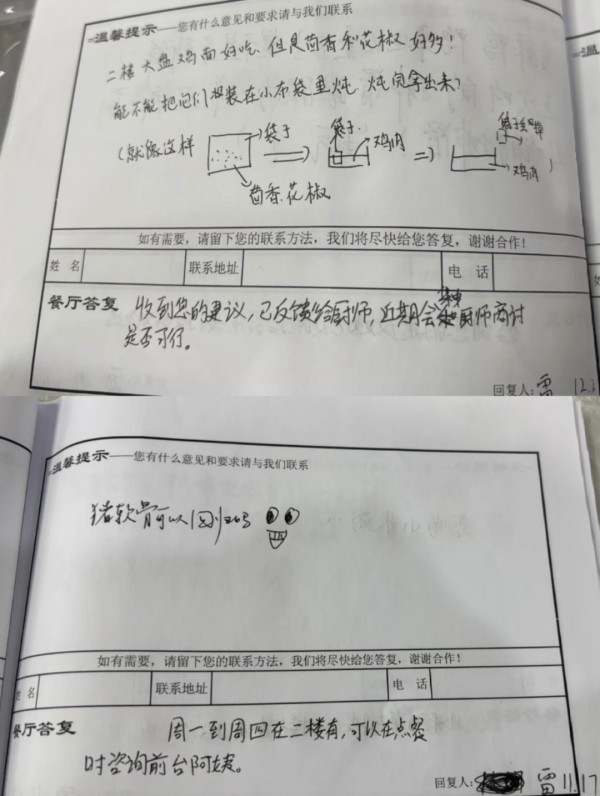 温馨提示——您有什么意见和要求请与我们联系
二楼大盘鸡面好吃,但是茴香和花椒好多!
能不能把它们包装在小布袋里炖,炖完拿出来?
(就像这样
袋子
茴香、花椒
袋子
鸡肉
鸡肉
)
如有需要,请留下您的联系方法,我们将尽快给您答复,谢谢合作!
姓 名 联系地址 电 话
餐厅答复 收到您的建议,已反馈给厨师,近期会和厨师商讨
是否可行。
回复人:雷 12.
温馨提示——您有什么意见和要求请与我们联系
猪软骨可以
如有需要,请留下您的联系方法,我们将尽快给您答复,谢谢合作!
名 联系地址 电 话
餐厅答复 周一到周四在二楼有,可以在点餐
时咨询前台阿姨。
回复人: 雷 11.17